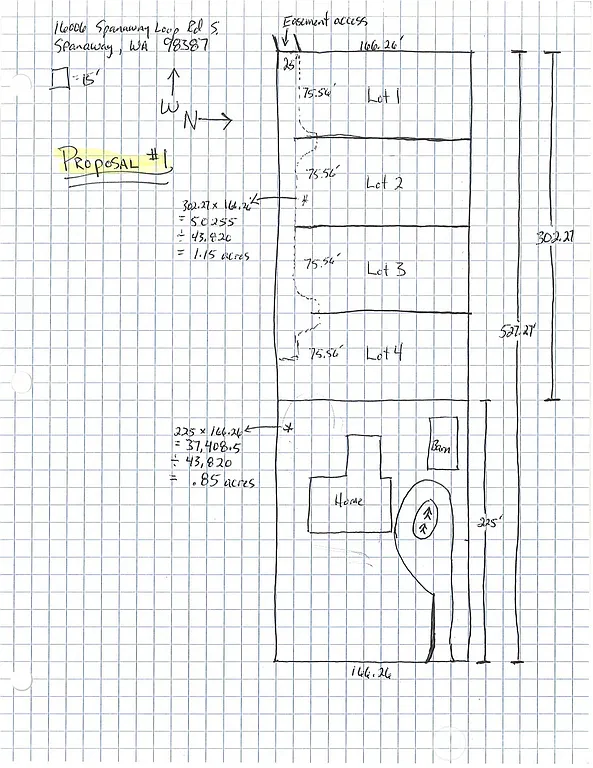 16006 Spanaway Loop Rd S.
Spanaway, WA 98387
= 15'
W
N
PROPOSAL #1
Easement access
166.26'
25'
75.56'
Lot 1
75.56'
Lot 2
302.27 × 166.26'
= 50255
÷ 43,820
= 1.15 acres
75.56'
Lot 3
302.27
527.27'
75.56'
Lot 4
225 × 166.26
= 37,408.5
÷ 43,820
= .85 acres
Barn
Home
225'
166.26